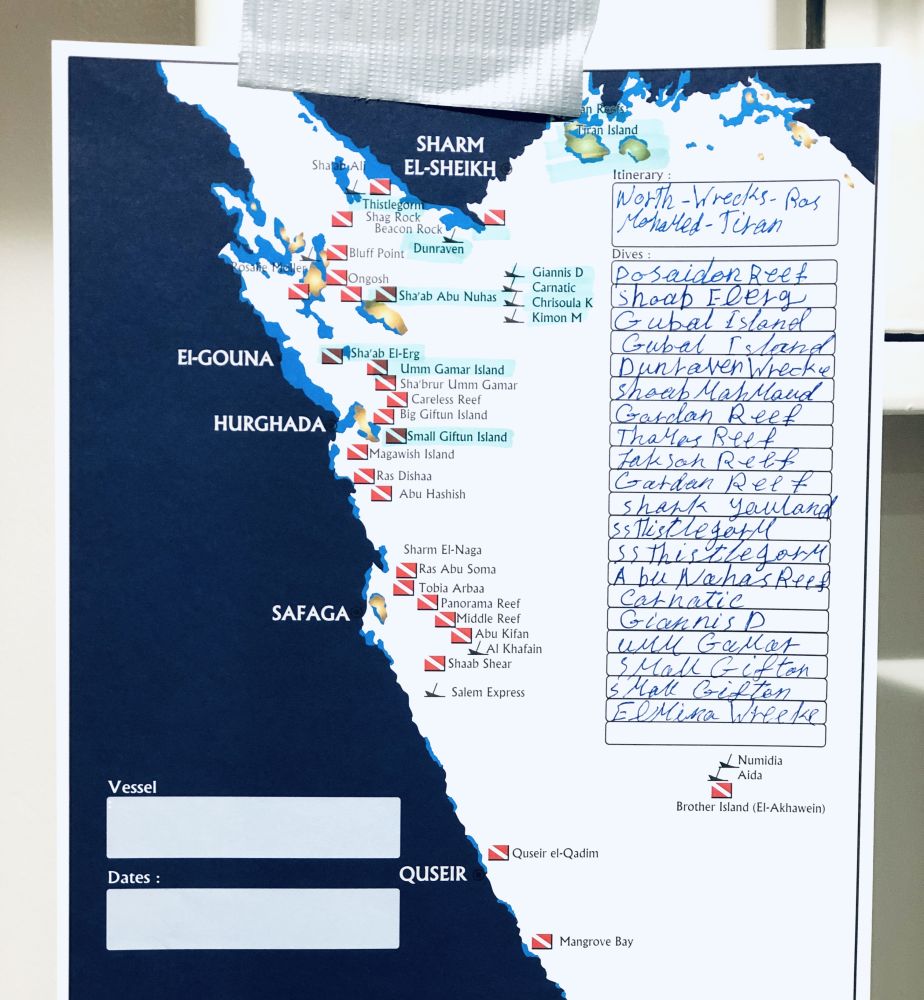 an Reefs
Tiran Island
SHARM
EL-SHEIKH
Sha'ab Ali
Thistlegorm
Shag Rock
Beacon Rock
Dunraven
Bluff Point
Rosalie Moller
Ongosh
Sha'ab Abu Nuhas
Giannis D
Carnatic
Chrisoula K
Kimon M
El-GOUNA
Sha'ab El-Erg
Umm Gamar Island
Sha'brur Umm Gamar
Careless Reef
Big Giftun Island
HURGHADA
Small Giftun Island
Magawish Island
Ras Dishaa
Abu Hashish
Sharm El-Naga
Ras Abu Soma
Tobia Arbaa
Panorama Reef
SAFAGA
Middle Reef
Abu Kifan
Al Khafain
Shaab Shear
Salem Express
Itinerary :
North-Wrecks-Ras
Mohamed-Tiran
Dives :
Posaidon Reef
shaab Elerg
Gubal Island
Gubal Island
Dunraven Wrecke
shaab Mahmaud
Gardan Reef
Thomas Reef
Jakson Reef
Gardan Reef
shark youland
ss Thistlegorm
ss Thistlegorm
Abu Nahas Reef
Carnatic
Giannis D
umm Gamar
small Gifton
small Gifton
El Mina Wrecke
Numidia
Aida
Brother Island (El-Akhawein)
Vessel
Dates :
QUSEIR
Quseir el-Qadim
Mangrove Bay